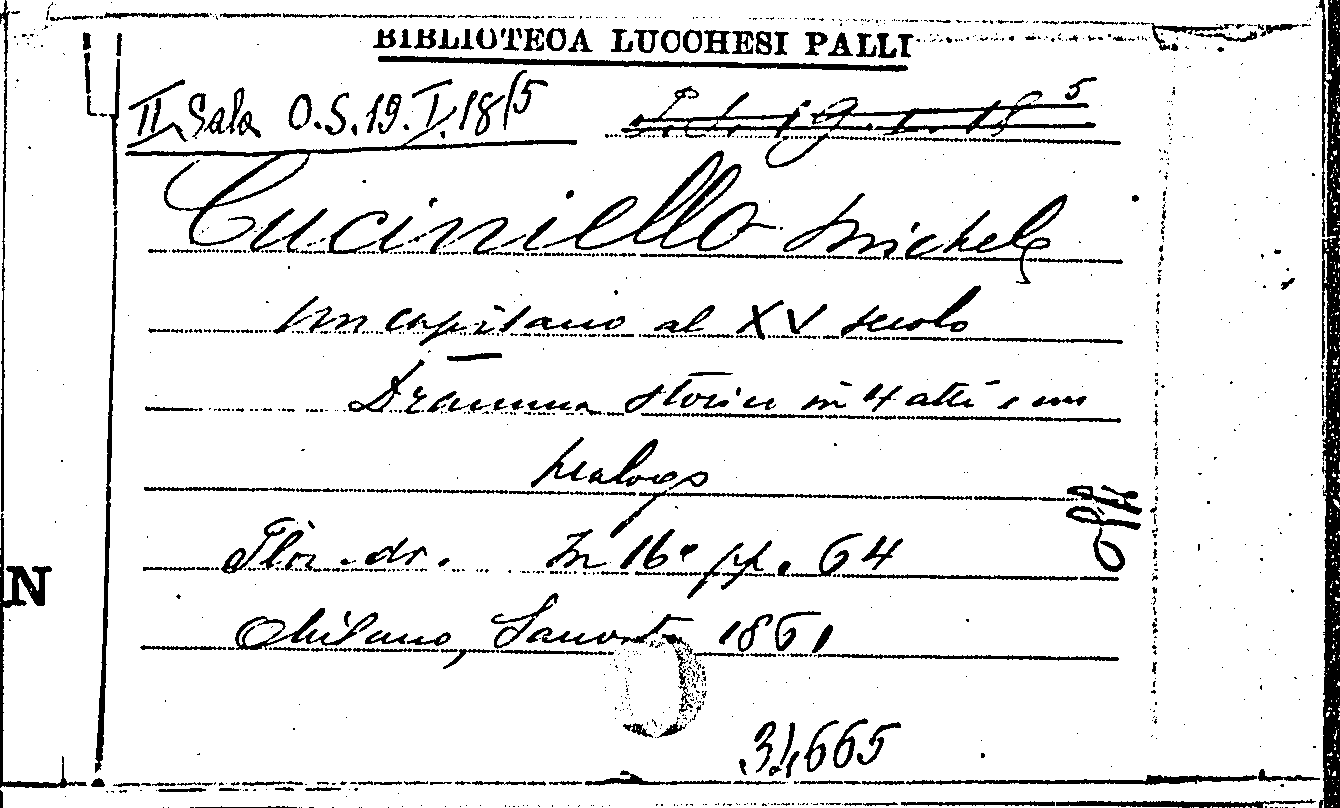 BIBLIOTECA LUCCHESI PALLI
II Sala O.S.19.I.18/5
Cuciniello Michele
Un capitano al XV secolo
Dramma storico in 4 atti e un
prologo
Flor. dr. In 16° pp. 64
Milano, Sanvito 1861
34665
N